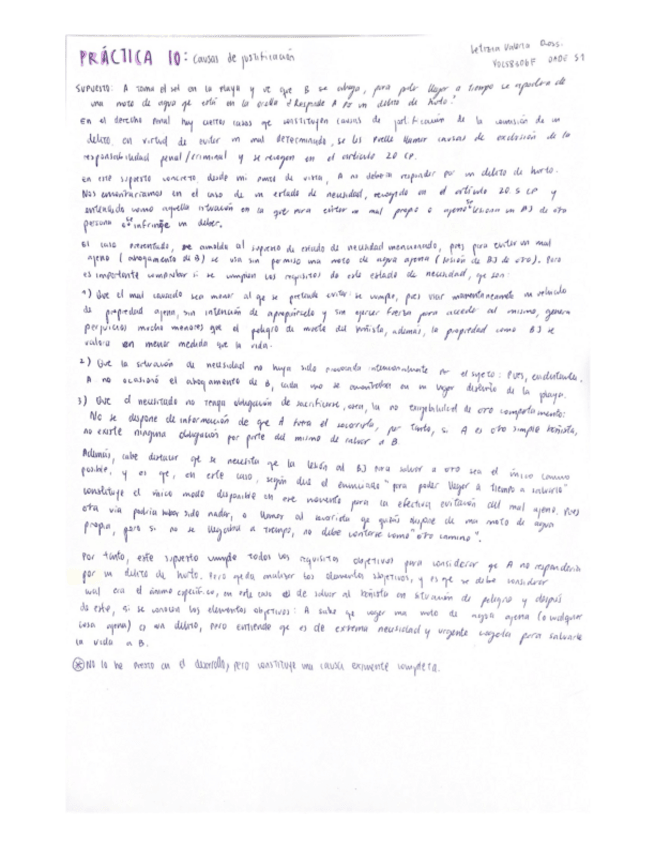 PRÁCTICA 10: causas de justificación
SUPUESTO: A toma el sol en la playa y ve que B se ahoga, para poder llegar a tiempo se apodera de
una moto de agua qe está en la orilla ¿Responde A por un delito de hurto?
En el derecho penal hay ciertos casos qe constituyen causas de justificación de la comisión de un
delito en virtud de evitar un mal determinado, se les puede llamar causas de exclusión de la
responsabilidad penal/criminal y se recogen en el artículo 20 CP.
En este supuesto concreto, desde mi punto de vista, A no debería responder por un delito de hurto.
Nos encontraríamos en el caso de un estado de necesidad, recogido en el artículo 20.5 CP y
entendido como aquella situación en la que para evitar un mal propio o ajeno se lesiona un BJ de otra
persona o se infringe un deber.
El caso presentado, se amolda al supuesto de estado de necesidad mencionado, pues para evitar un mal
ajeno (ahogamiento de B) se usa sin permiso una moto de agua ajena (lesión de BJ de otro). Pero
es importante comprobar si se cumplen los requisitos de este estado de necesidad, que son:
1) Que el mal causado sea menor al qe se pretende evitar: se cumple, pues usar momentáneamente un vehículo
de propiedad ajena, sin intención de apropiárselo y sin ejercer fuerza para acceder al mismo, genera
perjuicios mucho menores que el peligro de muerte del bañista, además, la propiedad como BJ se
valora en menor medida que la vida.
2) Que la situación de necesidad no haya sido provocada intencionalmente por el sujeto: pues, evidentemente,
A no ocasionó el ahogamiento de B, cada uno se encontraba en un lugar distinto de la playa.
3) Que el necesitado no tenga obligación de sacrificarse, o sea, la no exigibilidad de otro comportamiento:
No se dispone de información de que A fuera el socorrista, por tanto, si A es otro simple bañista,
no existe ninguna obligación por parte del mismo de salvar a B.
Además, cabe destacar qe se necesita qe la lesión al BJ para salvar a otro sea el único camino
posible, y es qe, en este caso, según dice el enunciado "para poder llegar a tiempo a salvarlo"
constituye el único modo disponible en ese momento para la efectiva evitación del mal ajeno. Pues
otra vía podría haber sido nadar, o llamar al socorrista qe quizás dispone de una moto de agua
propia, pero si no se llegaba a tiempo, no debe contarse como "otro camino".
Por tanto, este supuesto cumple todos los requisitos objetivos para considerar qe A no respondería
por un delito de hurto. Pero queda analizar los elementos subjetivos, y es qe se debe considerar
cual era el ánimo específico, en este caso es de salvar al bañista en situación de peligro y después
de este, si se conocen los elementos objetivos: A sabe qe coger una moto de agua ajena (o cualquier
cosa ajena) es un delito, pero entiende qe es de extrema necesidad y urgente cogerla para salvarle
la vida a B.
No lo he puesto en el desarrollo, pero constituye una causa eximente completa.